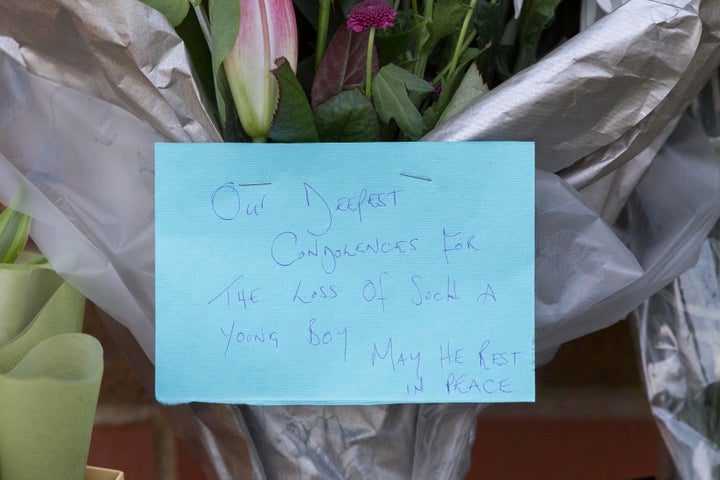 Our Deepest
Condolences For
The Loss Of Such A
Young Boy
May He Rest
in Peace